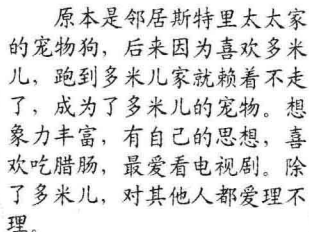 原本是邻居斯特里太太家
的宠物狗，后来因为喜欢多米
儿，跑到多米儿家就赖着不走
了，成为了多米儿的宠物。想
象力丰富，有自己的思想，喜
欢吃腊肠，最爱看电视剧。除
了多米儿，对其他人都爱理不
理。